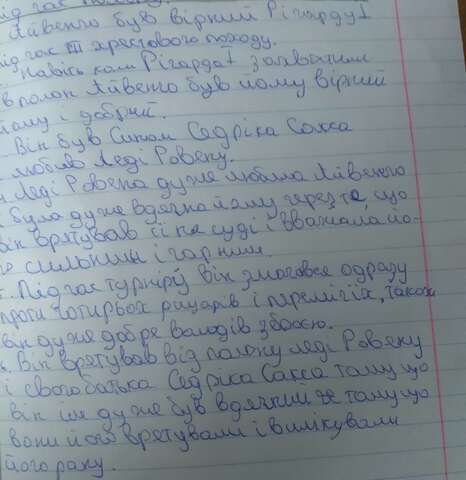 під час
Айвенго був вірний Рігарду I
під час III хрестового походу.
Навіть коли Рігарда I захватили
в полон Айвенго був йому вірний
йому і добрий.
Він був Сином Седріка Сакса
любив Леді Ровену.
Леді Ровена дуже любила Айвенго
і була дуже вдячна йому через те, що
він врятував її на суді і вважала йо-
го сильним і гарним.
Під час турніру він змагався одразу
проти чотирьох рицарів і переміг їх, також
він дуже добре володів зброєю.
Він врятував від полону леді Ровену
і свого батька Седріка Сакса тому що
він їм дуже був вдячний за тому що
вони його врятували і вилікували
його рану.